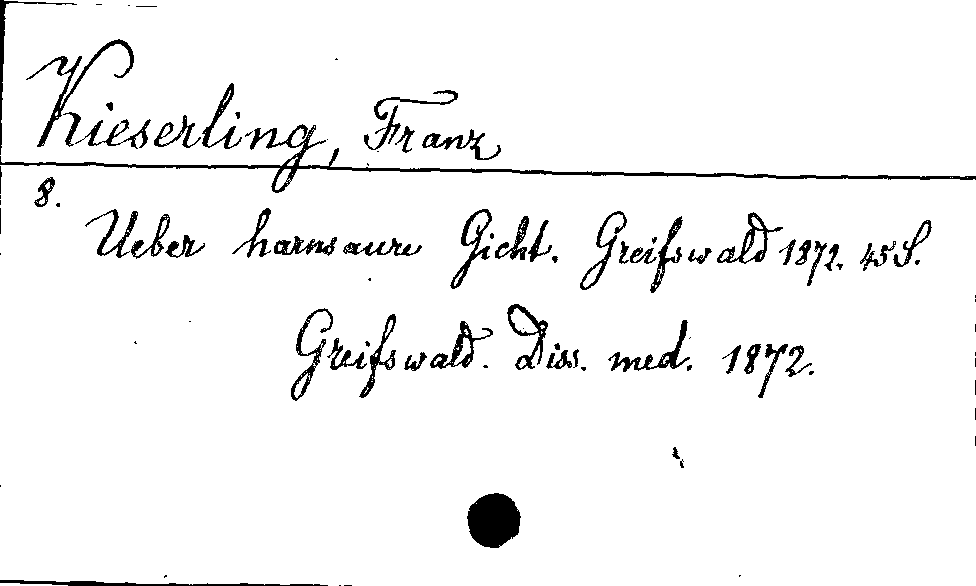 Kieserling, Franz
8.
Ueber harnsaure Gicht. Greifswald 1872. 45 S.
Greifswald. Diss. med. 1872.